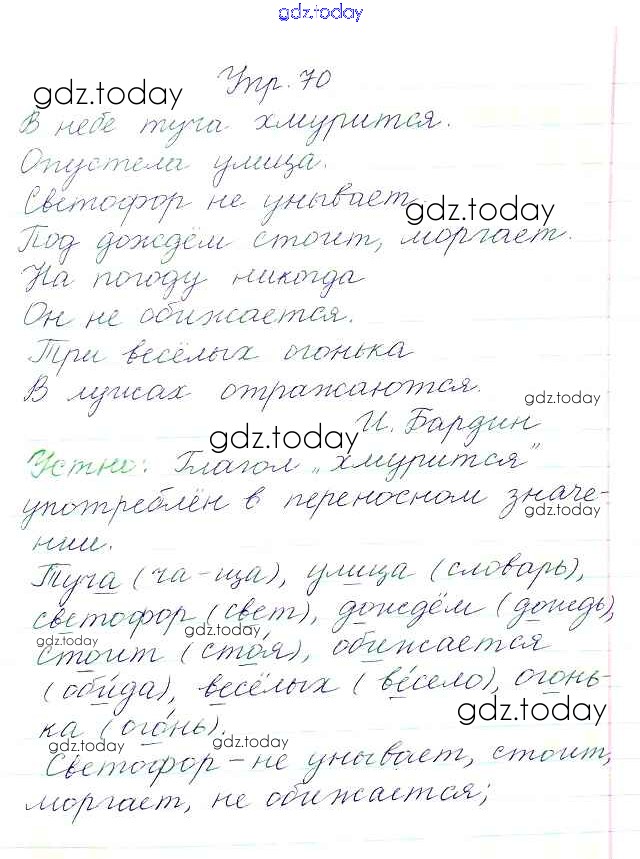 gdz.today
Упр. 70
gdz.today
В небе туча хмурится.
Опустела улица.
Светофор не унывает
gdz.today
Под дождём стоит, моргает.
На погоду никогда
Он не обижается.
Три весёлых огонька
В лужах отражаются.
gdz.today
И. Бардин
gdz.today
Устно: Глагол „хмурится"
употреблён в переносном значе-
gdz.today
нии.
Туча (ча-ща), улица (словарь),
светофор (свет), дождём (дождь),
gdz.today
gdz.today
стоит (сто́я), обижается
(оби́да), весёлых (ве́село), огонь-
ка (ого́нь).
gdz.today
gdz.today
gdz.today
Светофор – не унывает, стоит,
моргает, не обижается;